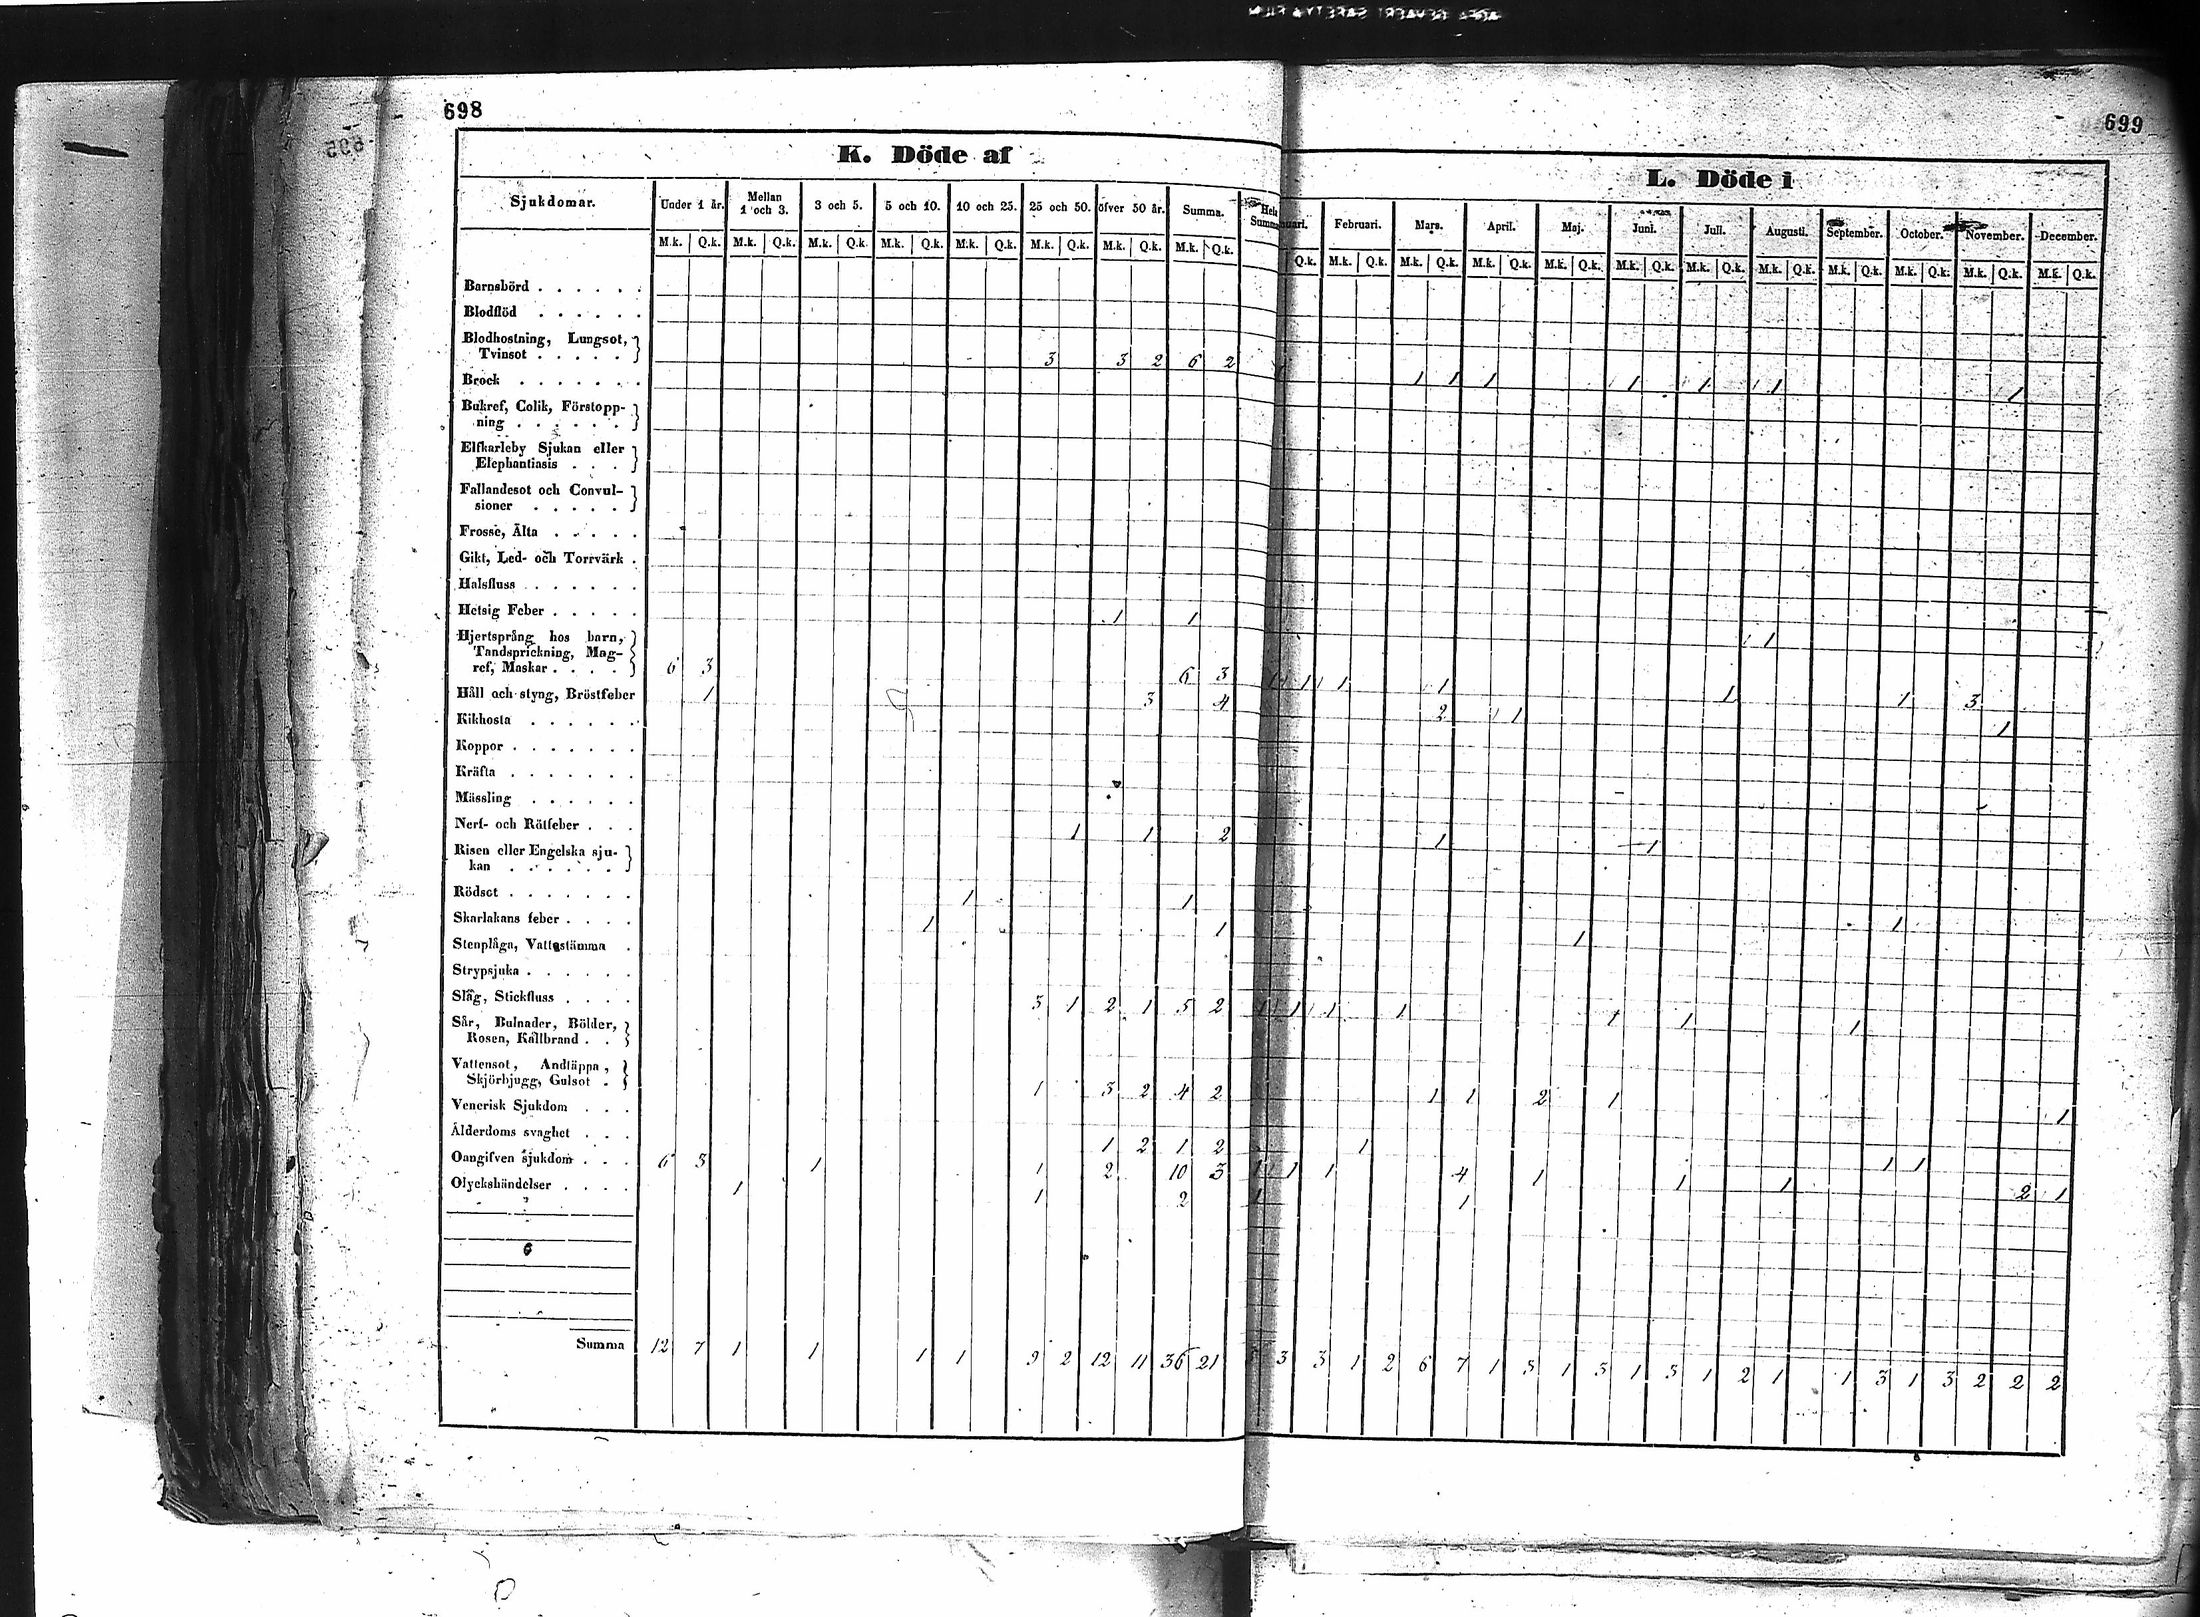 698
699
K. Döde af
L. Döde i
Sjukdomar. Under 1 år. Mellan 1 och 3. 3 och 5. 5 och 10. 10 och 25. 25 och 50. öfver 50 år. Summa.
Februari. Mars. April. Maj. Juni. Juli. Augusti. September. October. November. December.
M.k. Q.k. M.k. Q.k. M.k. Q.k. M.k. Q.k. M.k. Q.k. M.k. Q.k. M.k. Q.k. M.k. Q.k.
Q.k. M.k. Q.k. M.k. Q.k. M.k. Q.k. M.k. Q.k. M.k. Q.k. M.k. Q.k. M.k. Q.k. M.k. Q.k. M.k. Q.k. M.k. Q.k. M.k. Q.k.
Barnsbörd . . . . . .
Blodflöd . . . . . .
Blodhostning, Lungsot,
Tvinsot . . . . . 3 3 2 6 2 1 1 1 1 1 1 1
Brock . . . . . . .
Bukref, Colik, Förstopp-
ning . . . . . .
Elfkarleby Sjukan eller
Elephantiasis . . .
Fallandesot och Convul-
sioner . . . . .
Frosse, Älta . . . . .
Gikt, Led- och Torrvärk .
Halsfluss . . . . . .
Hetsig Feber . . . . . 1 1 1
Hjertsprång hos barn,
Tandsprickning, Mag-
ref, Maskar . . . . 6 3 6 3 1 1 1 1 1 1 3
Håll och styng, Bröstfeber 1 3 4 2 1 1
Kikhosta . . . . . .
Koppor . . . . . . .
Kräfta . . . . . . .
Mässling . . . . . .
Nerf- och Rötfeber . . . 1 1 2 1 1
Risen eller Engelska sju-
kan . . . . . .
Rödsot . . . . . . . 1 1 1
Skarlakans feber . . . . 1 1 1
Stenplåga, Vattustämma .
Strypsjuka . . . . . .
Slag, Stickfluss . . . . 3 1 2 1 5 2 1 1 1 1 1 1 1
Sår, Bulnader, Bölder,
Rosen, Kallbrand . .
Vattensot, Andtäppa,
Skjörbjugg, Gulsot . 1 3 2 4 2 1 1 2 1 1
Venerisk Sjukdom . . .
Ålderdoms svaghet . . . 1 2 1 2 1 1 1
Oangifven sjukdom . . . 6 3 1 1 2 10 3 1 1 1 4 1 1 1 2 1
Olyckshändelser . . . . 1 1 2 1 1
Summa 12 7 1 1 1 1 9 2 12 11 36 21 3 3 1 2 6 7 1 3 1 3 1 3 1 2 1 1 3 1 3 2 2 2